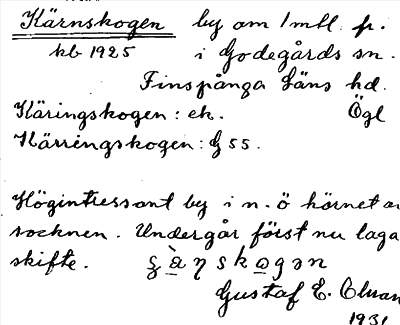 Kärnskogen by om 1 mtl. fr.
kb 1925 i Godegårds sn.
Finspånga Läns hd.
Käringskogen: ek. Ögl
Kärringskogen: G 55.
Högintressant by i n. ö hörnet av
socknen. Undergår först nu laga
skifte.
Gustaf E. Olsson
1931